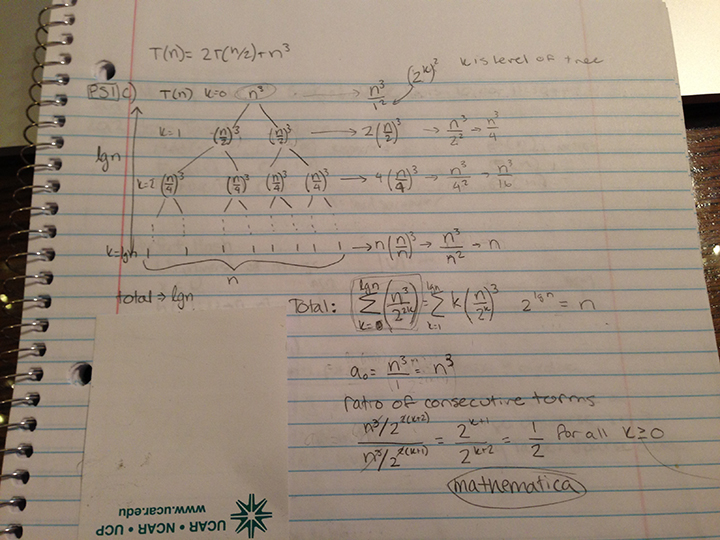 T(n) = 2T(n/2) + n³
(2^k)² k is level of tree
PS1 c) T(n) k=0 n³ → n³/1²
k=1 (n/2)³ (n/2)³ → 2(n/2)³ → n³/2² → n³/4
lgn
k=2 (n/4)³ (n/4)³ (n/4)³ (n/4)³ → 4(n/4)³ → n³/4² → n³/16
k=lgn 1 1 1 1 1 1 1 1 → n(n/n)³ → n³/n² → n
n
total → lgn
Total: ∑_{k=0}^{lgn} (n³/2^{2k}) = ∑_{k=1}^{lgn} k(n/2^k)³ 2^{lgn} = n
a₀ = n³/1 = n³
ratio of consecutive terms
(n³/2^{2(k+2)})/(n³/2^{2(k+1)}) = 2^{k+1}/2^{k+2} = 1/2 for all k ≥ 0
mathematica
UCAR • NCAR • UCP
www.ucar.edu